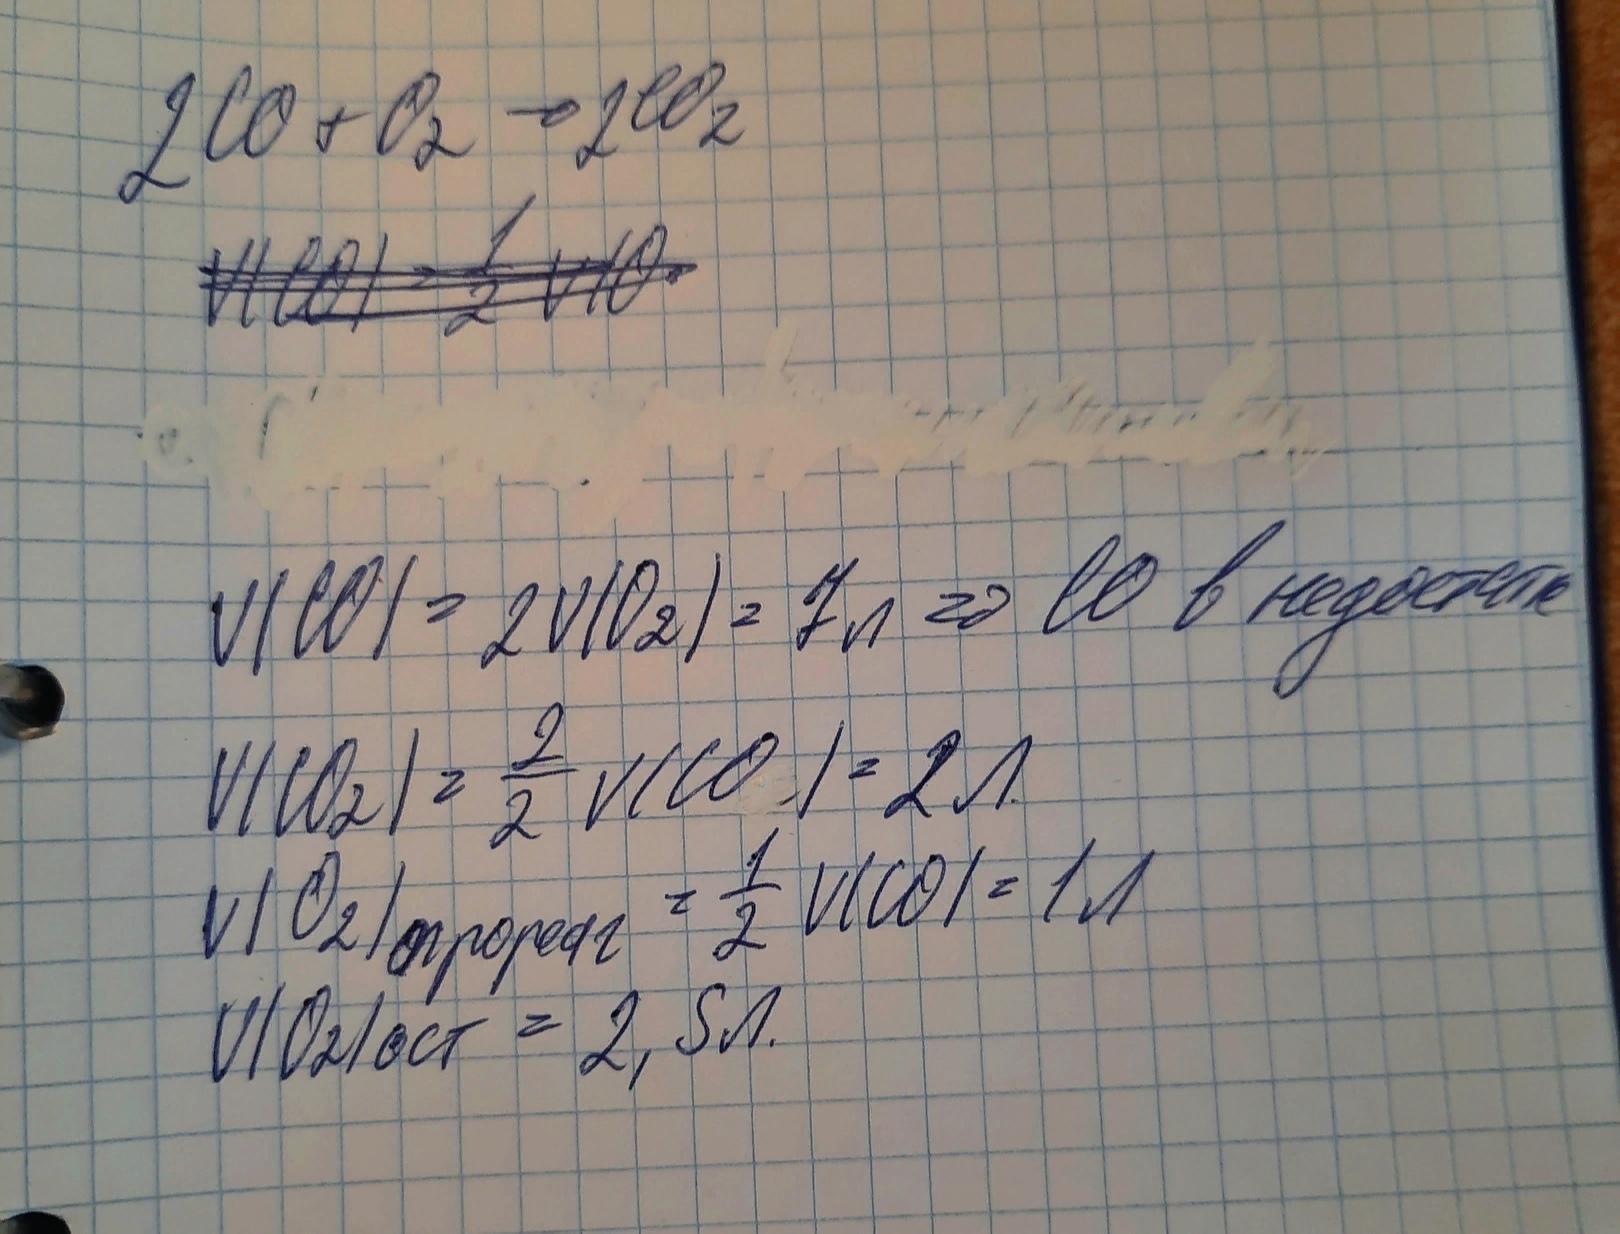 2CO + O2 → 2CO2
V(CO) = 2V(O2) = 7л => CO в недостатк
V(CO2) = 2/2 V(CO) = 2л.
V(O2)прореаг = 1/2 V(CO) = 1л
V(O2)ост = 2,5л.